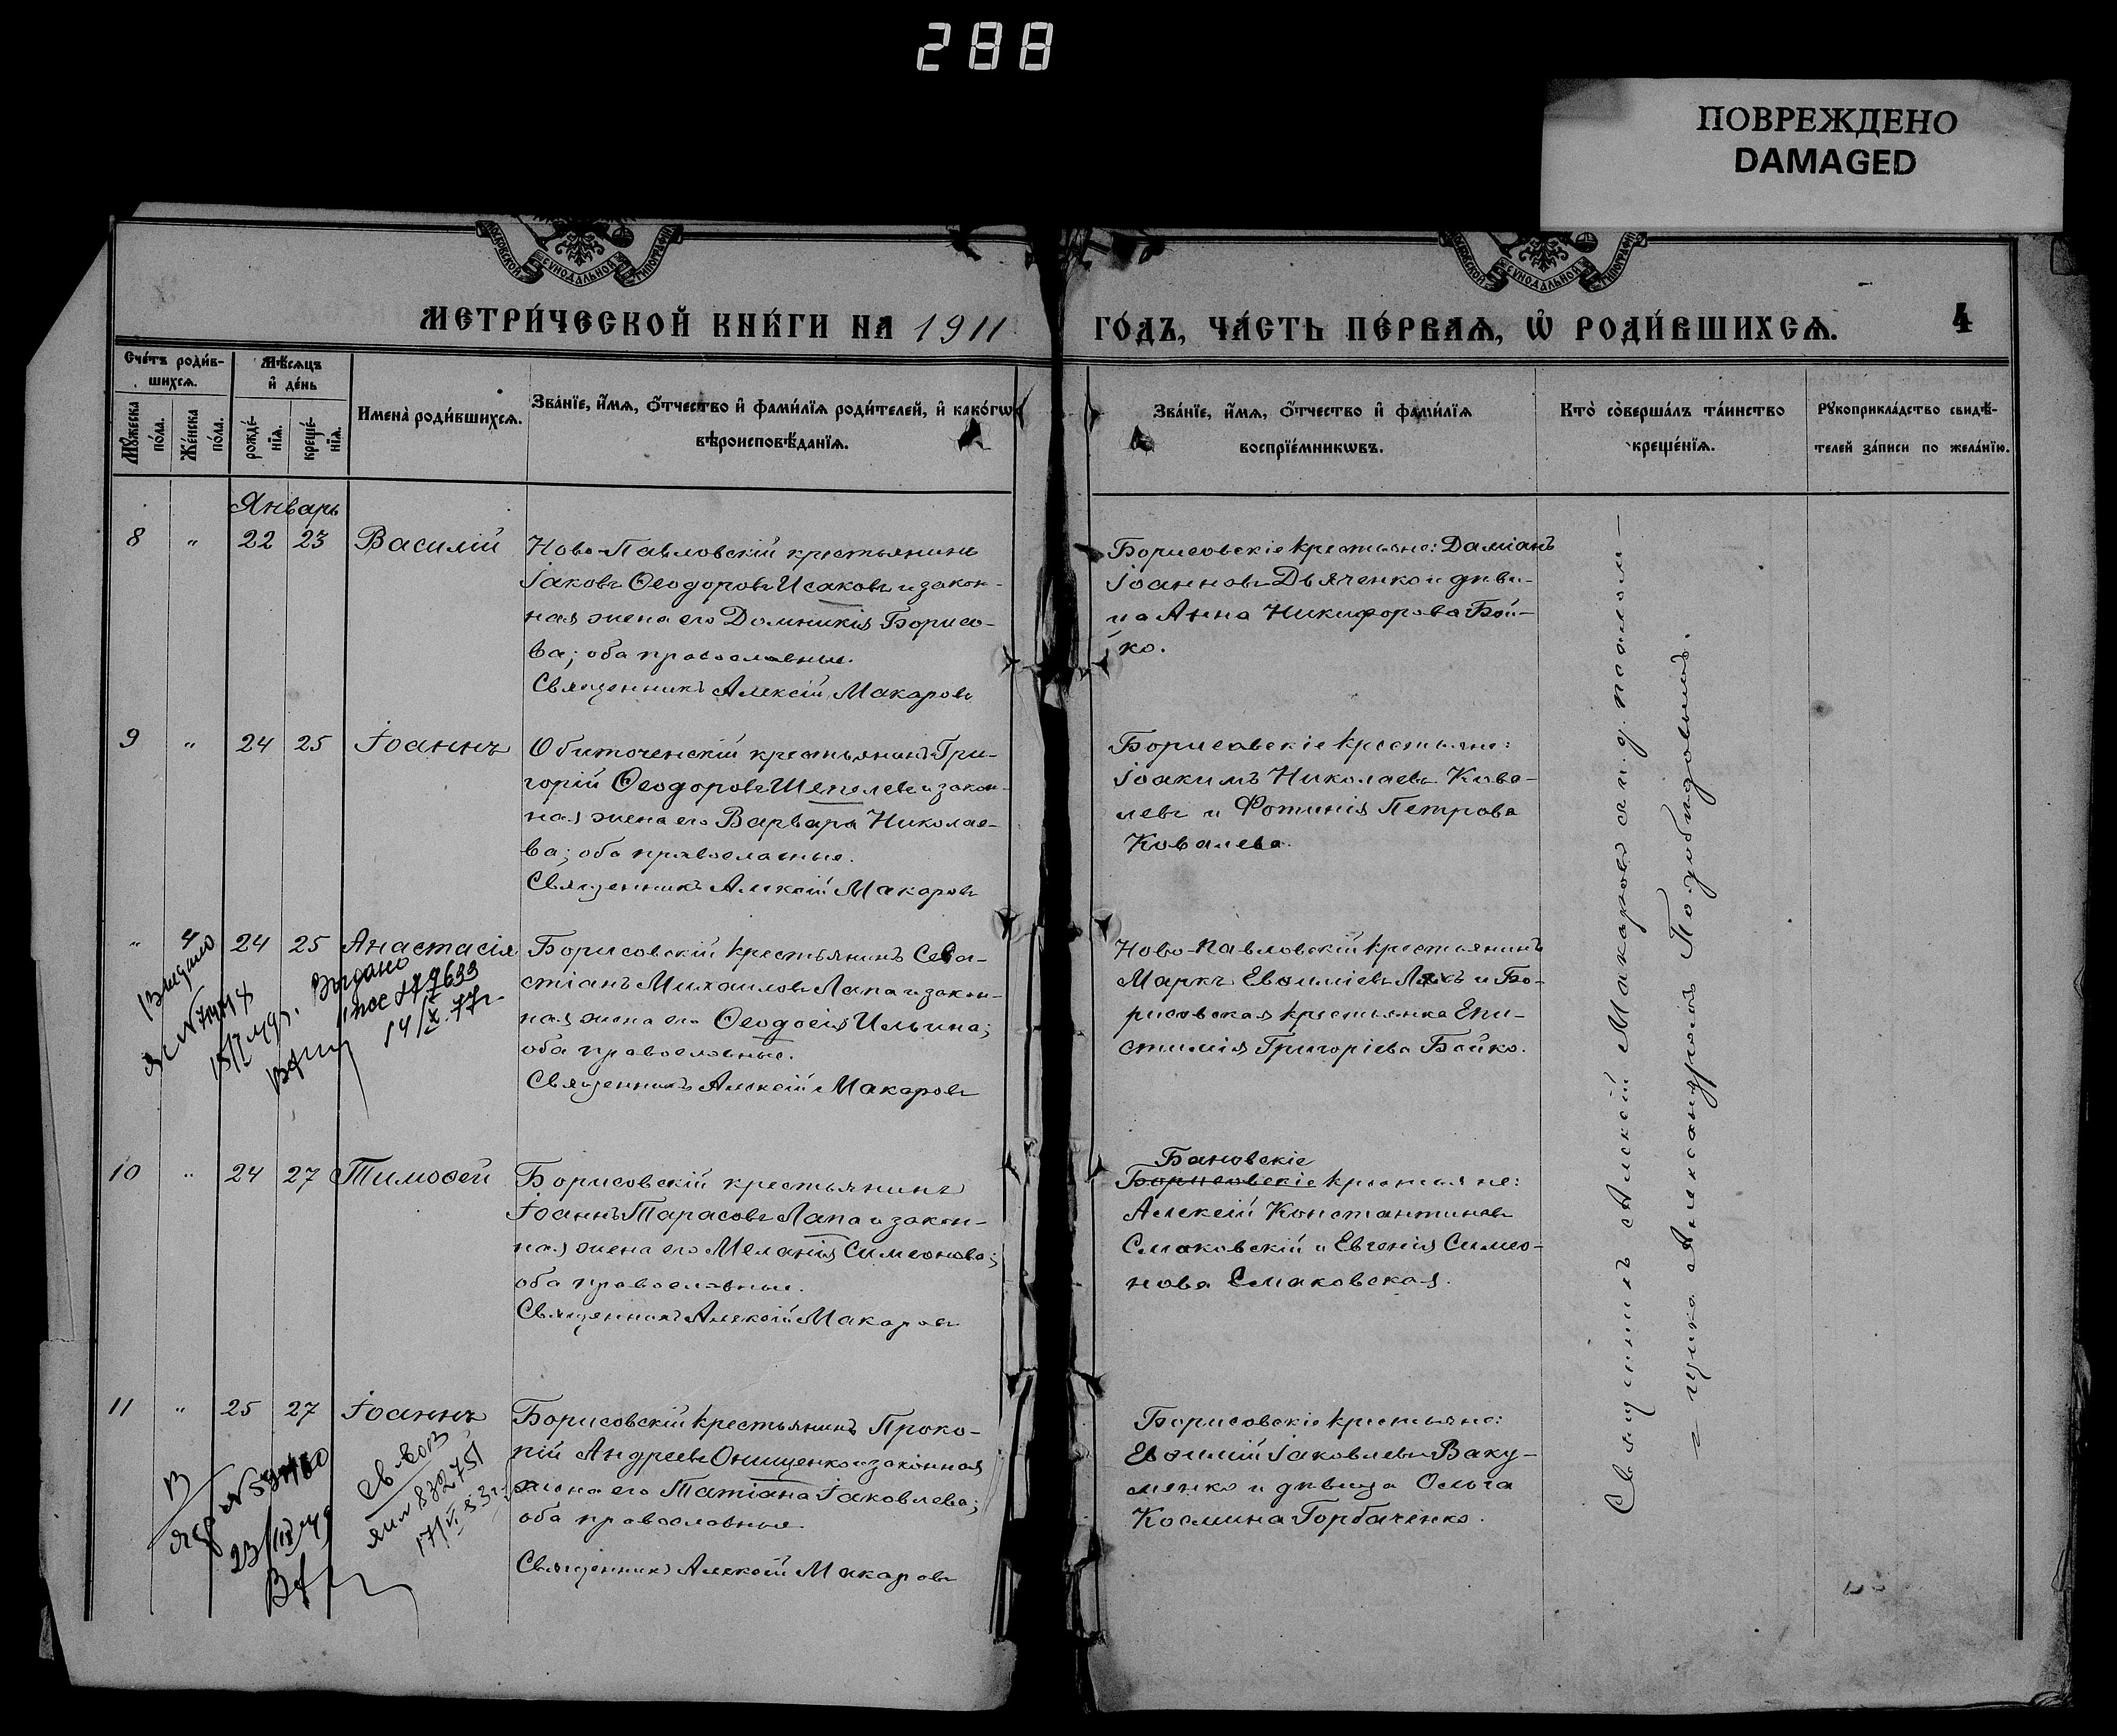 288
ПОВРЕЖДЕНО
DAMAGED
МОСКОВСКОЙ СѴНОДАЛЬНОЙ ТИПОГРАФІИ
МОСКОВСКОЙ СѴНОДАЛЬНОЙ ТИПОГРАФІИ
МЕТРИ́ЧЕСКОЙ КНИ́ГИ НА 1911 ГО́ДЪ, ЧА́СТЬ ПЕ́РВАѦ, Ѡ҆ РОДИ́ВШИХСѦ. 4
Сче́тъ роди́в-
шихсѧ.
Мѣ́сѧцъ
и҆ де́нь
Мꙋ́жеска
по́ла.
Же́нска
по́ла.
рожде́-
нїѧ.
креще́-
нїѧ.
Имена̀ роди́вшихсѧ.
Зва́нїе, и҆́мѧ, ѻ҆́тчество и҆ фами́лїѧ роди́телей, и҆ како́гѡ
вѣроисповѣ́данїѧ.
Зва́нїе, и҆́мѧ, ѻ҆́тчество и҆ фами́лїѧ
воспрїе́мникѡвъ.
Кто̀ соверша́лъ та́инство
креще́нїѧ.
Рꙋкоприкла́дство свидѣ́-
телей за́писи по жела́нїю.
Январь
8 " 22 23 Василій
Ново-Павловскій крестьянинъ
Іаковъ Ѳеодоровъ Исаковъ и закон-
ная жена его Домникія Борисо-
ва; оба православные.
Священникъ Алексій Макаровъ
Борисовскіе крестьяне: Даміанъ
Іоанновъ Дьяченко и дѣви-
ца Анна Никифорова Бой-
ко.
9 " 24 25 Іоаннъ
Обиточенскій крестьянинъ Гри-
горій Ѳеодоровъ Шепелевъ и закон-
ная жена его Варвара Николае-
ва; оба православные.
Священникъ Алексій Макаровъ
Борисовскіе крестьяне:
Іоакимъ Николаевъ Кова-
левъ и Фотинія Петрова
Ковалева.
" 4 24 25 Анастасія
Борисовскій крестьянинъ Сева-
стіанъ Михаиловъ Лапа и закон-
ная жена его Ѳеодосія Ильина;
оба православные.
Священникъ Алексій Макаровъ
Ново-Павловскій крестьянинъ
Маркъ Евѳиміевъ Ляхъ и Бо-
рисовская крестьянка Епи-
стимія Григоріева Бойко.
Выдано
14/X.77г.
10 " 24 27 Тимоѳей
Борисовскій крестьянинъ
Іоаннъ Тарасовъ Лапа и закон-
ная жена его Меланія Симеонова;
оба православные.
Священникъ Алексій Макаровъ
Бановскіе
Борисовскіе крестьяне:
Алексій Константиновъ
Смаковскій и Евгенія Симео-
нова Смаковская.
11 " 25 27 Іоаннъ
Борисовскій крестьянинъ Проко-
пій Андреевъ Онищенко и законная
жена его Татіана Іаковлева;
оба православные.
Священникъ Алексій Макаровъ
Борисовскіе крестьяне:
Евѳимій Іаковлевъ Ваку-
ленко и дѣвица Ольга
Космина Горбаченко.
Священникъ Алексій Макаровъ съ и. д. псалом-
щика Александромъ